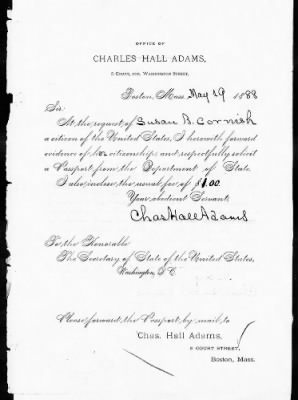 OFFICE OF
CHARLES HALL ADAMS,
5 COURT, COR. WASHINGTON STREET,
Boston, Mass. May 29 1888
Sir
At the request of Susan B. Cornish
a citizen of the United States, I herewith forward
evidence of her citizenship and respectfully solicit
a Passport from the Department of State.
I also inclose the usual fee of $1.00.
Your obedient Servant
Chas Hall Adams
To the Honorable
The Secretary of State of the United States,
Washington, D.C.
Please forward the Passport by mail to
Chas. Hall Adams,
5 COURT STREET,
Boston, Mass.